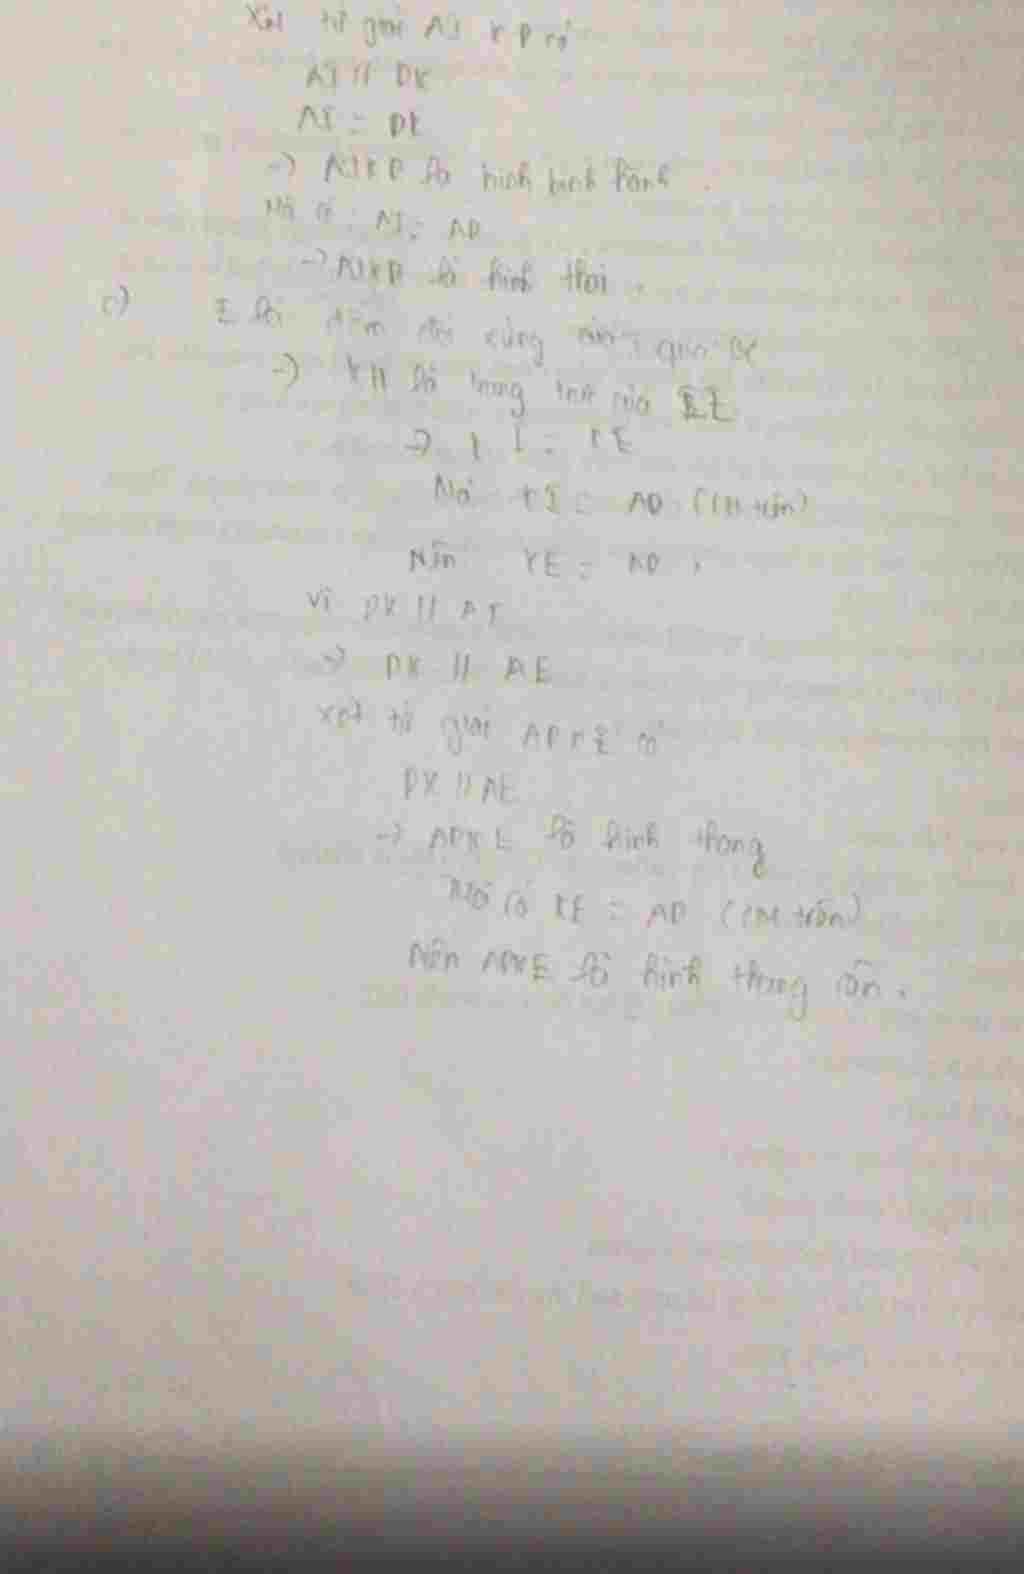 Xét tứ giác AIKD có
AI // DK
AI = DK
-> AIKD là hình bình hành.
Mà có: AI = AD
-> AIKD là hình thoi.
c) E là điểm đối xứng qua BC
-> KH là trung trực của IE
-> KI = KE
Mà KI = AD (CM trên)
Nên KE = AD
Vì DK // AI
-> DK // AE
Xét tứ giác ADKE có
DK // AE
-> ADKE là hình thang
Mà có KE = AD (CM trên)
Nên ADKE là hình thang cân.